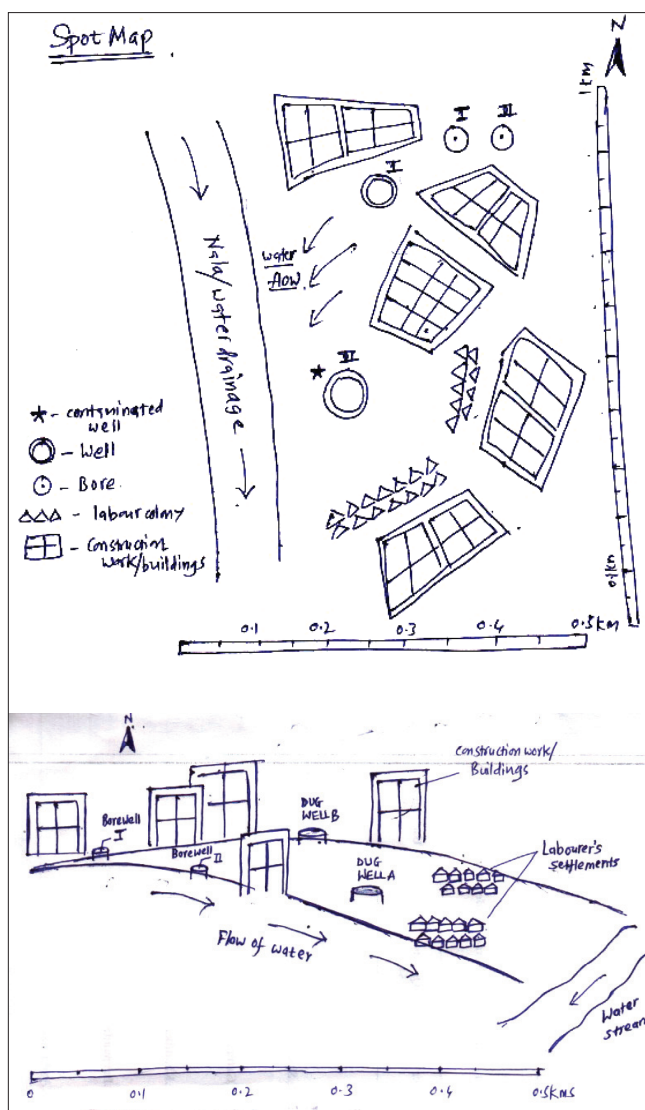 Spot Map
N
1 km
I
II
I
water
flow
Nala/water drainage
II
* - contaminated
well
- Well
- Bore
- labour colony
- Construction
work/buildings
0.1km
0.1
0.2
0.3
0.4
0.5km
N
Construction work/
Buildings
Borewell
I
DUG
WELL B
Borewell
II
DUG
WELL A
Labourer's
settlements
Flow of water
Water
stream
0
0.1
0.2
0.3
0.4
0.5kms